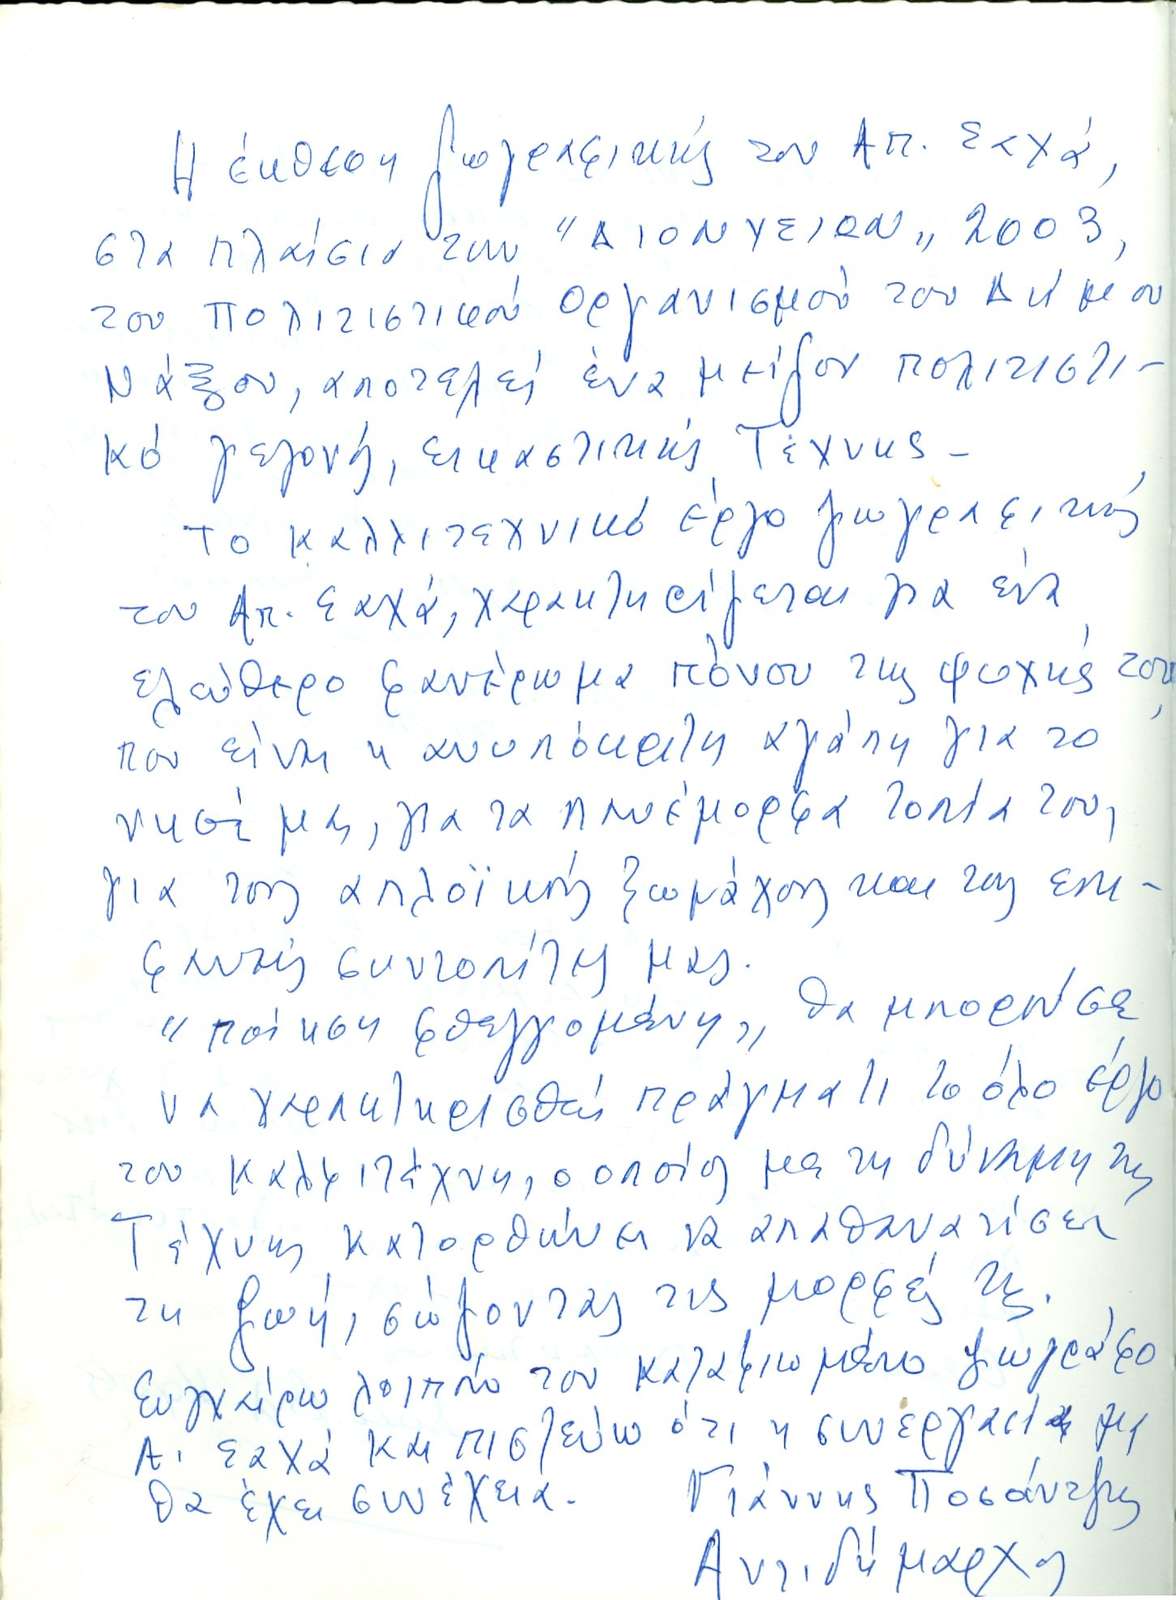 Η έκθεση ζωγραφικής του Απ. Σαχά,
στα πλαίσια των "ΔΙΟΝΥΣΙΩΝ" 2003,
του Πολιτιστικού Οργανισμού του Δήμου
Νάξου, αποτελεί ένα μείζον πολιτιστι-
κό γεγονός, εικαστικής Τέχνης -
Το καλλιτεχνικό έργο ζωγραφικής
του Απ. Σαχά, χαρακτηρίζεται για ένα
ελεύθερο φανέρωμα πόνου της ψυχής του
που είναι η ανυπόκριτη αγάπη για το
νησί μας, για τα πανέμορφα τοπία του,
για τους απλοϊκούς ξωμάχους και τους επι-
φανείς συντοπίτες μας.
"ποίηση φθεγγομένη" θα μπορούσε
να χαρακτηρισθεί πράγματι το όλο έργο
του καλλιτέχνη, ο οποίος με τη δύναμη της
Τέχνης κατορθώνει να απαθανατίσει
τη ζωή, σώζοντας τις μορφές της.
Συγχαίρω λοιπόν τον καταξιωμένο ζωγράφο
Α. Σαχά και πιστεύω ότι η συνεργασία μας
θα έχει συνέχεια. Γιάννης Ποσάντζης
Αντιδήμαρχος